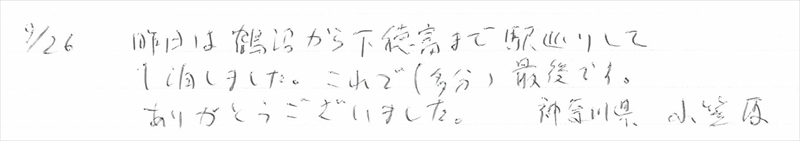 9/26 昨日は鶴沼から下徳富まで駅巡りして
1泊しました。これで(多分)最後です。
ありがとうございました。 神奈川県 小笠原